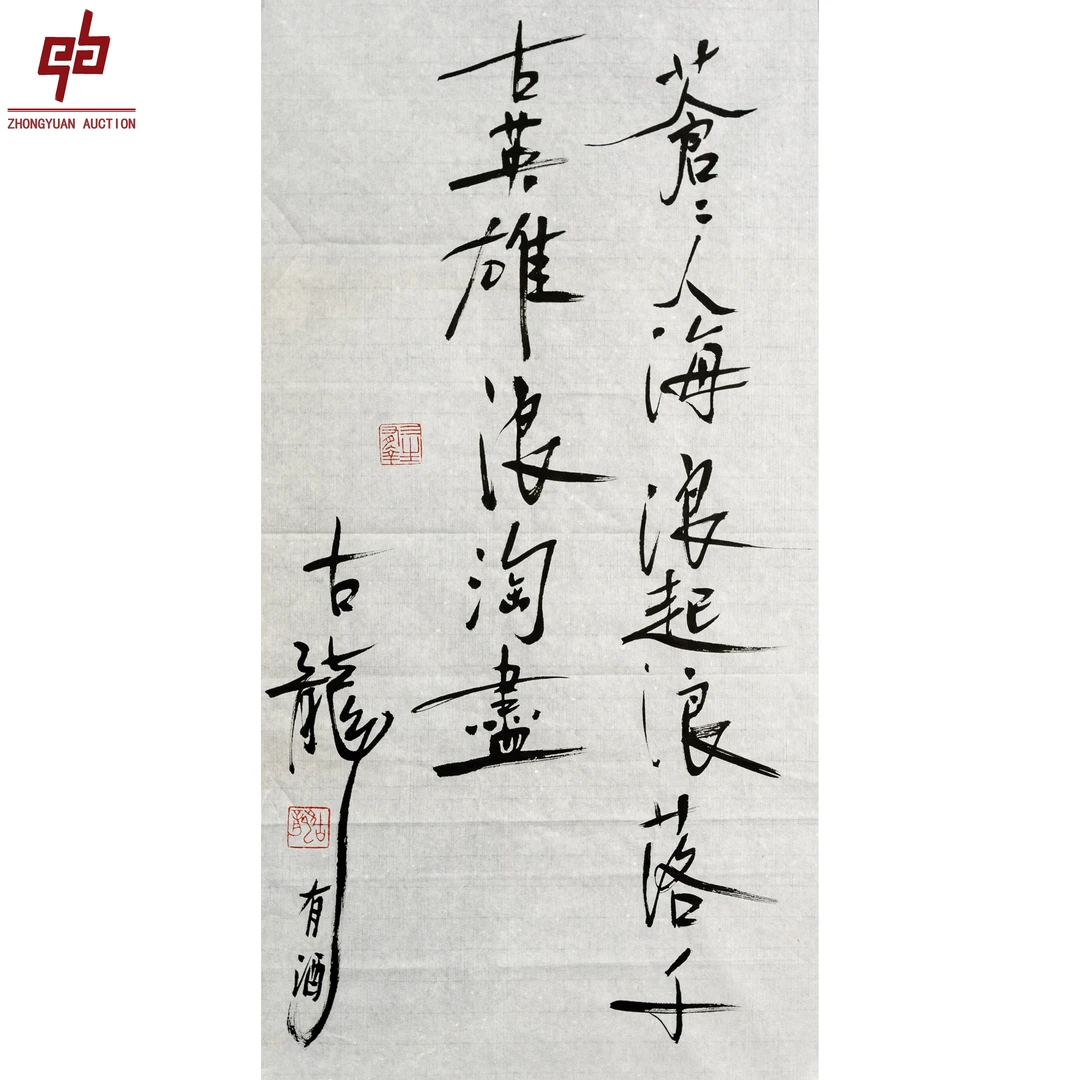 ZHONGYUAN AUCTION
蒼〻人海浪起浪落千
古英雄浪淘盡
古龍
有酒